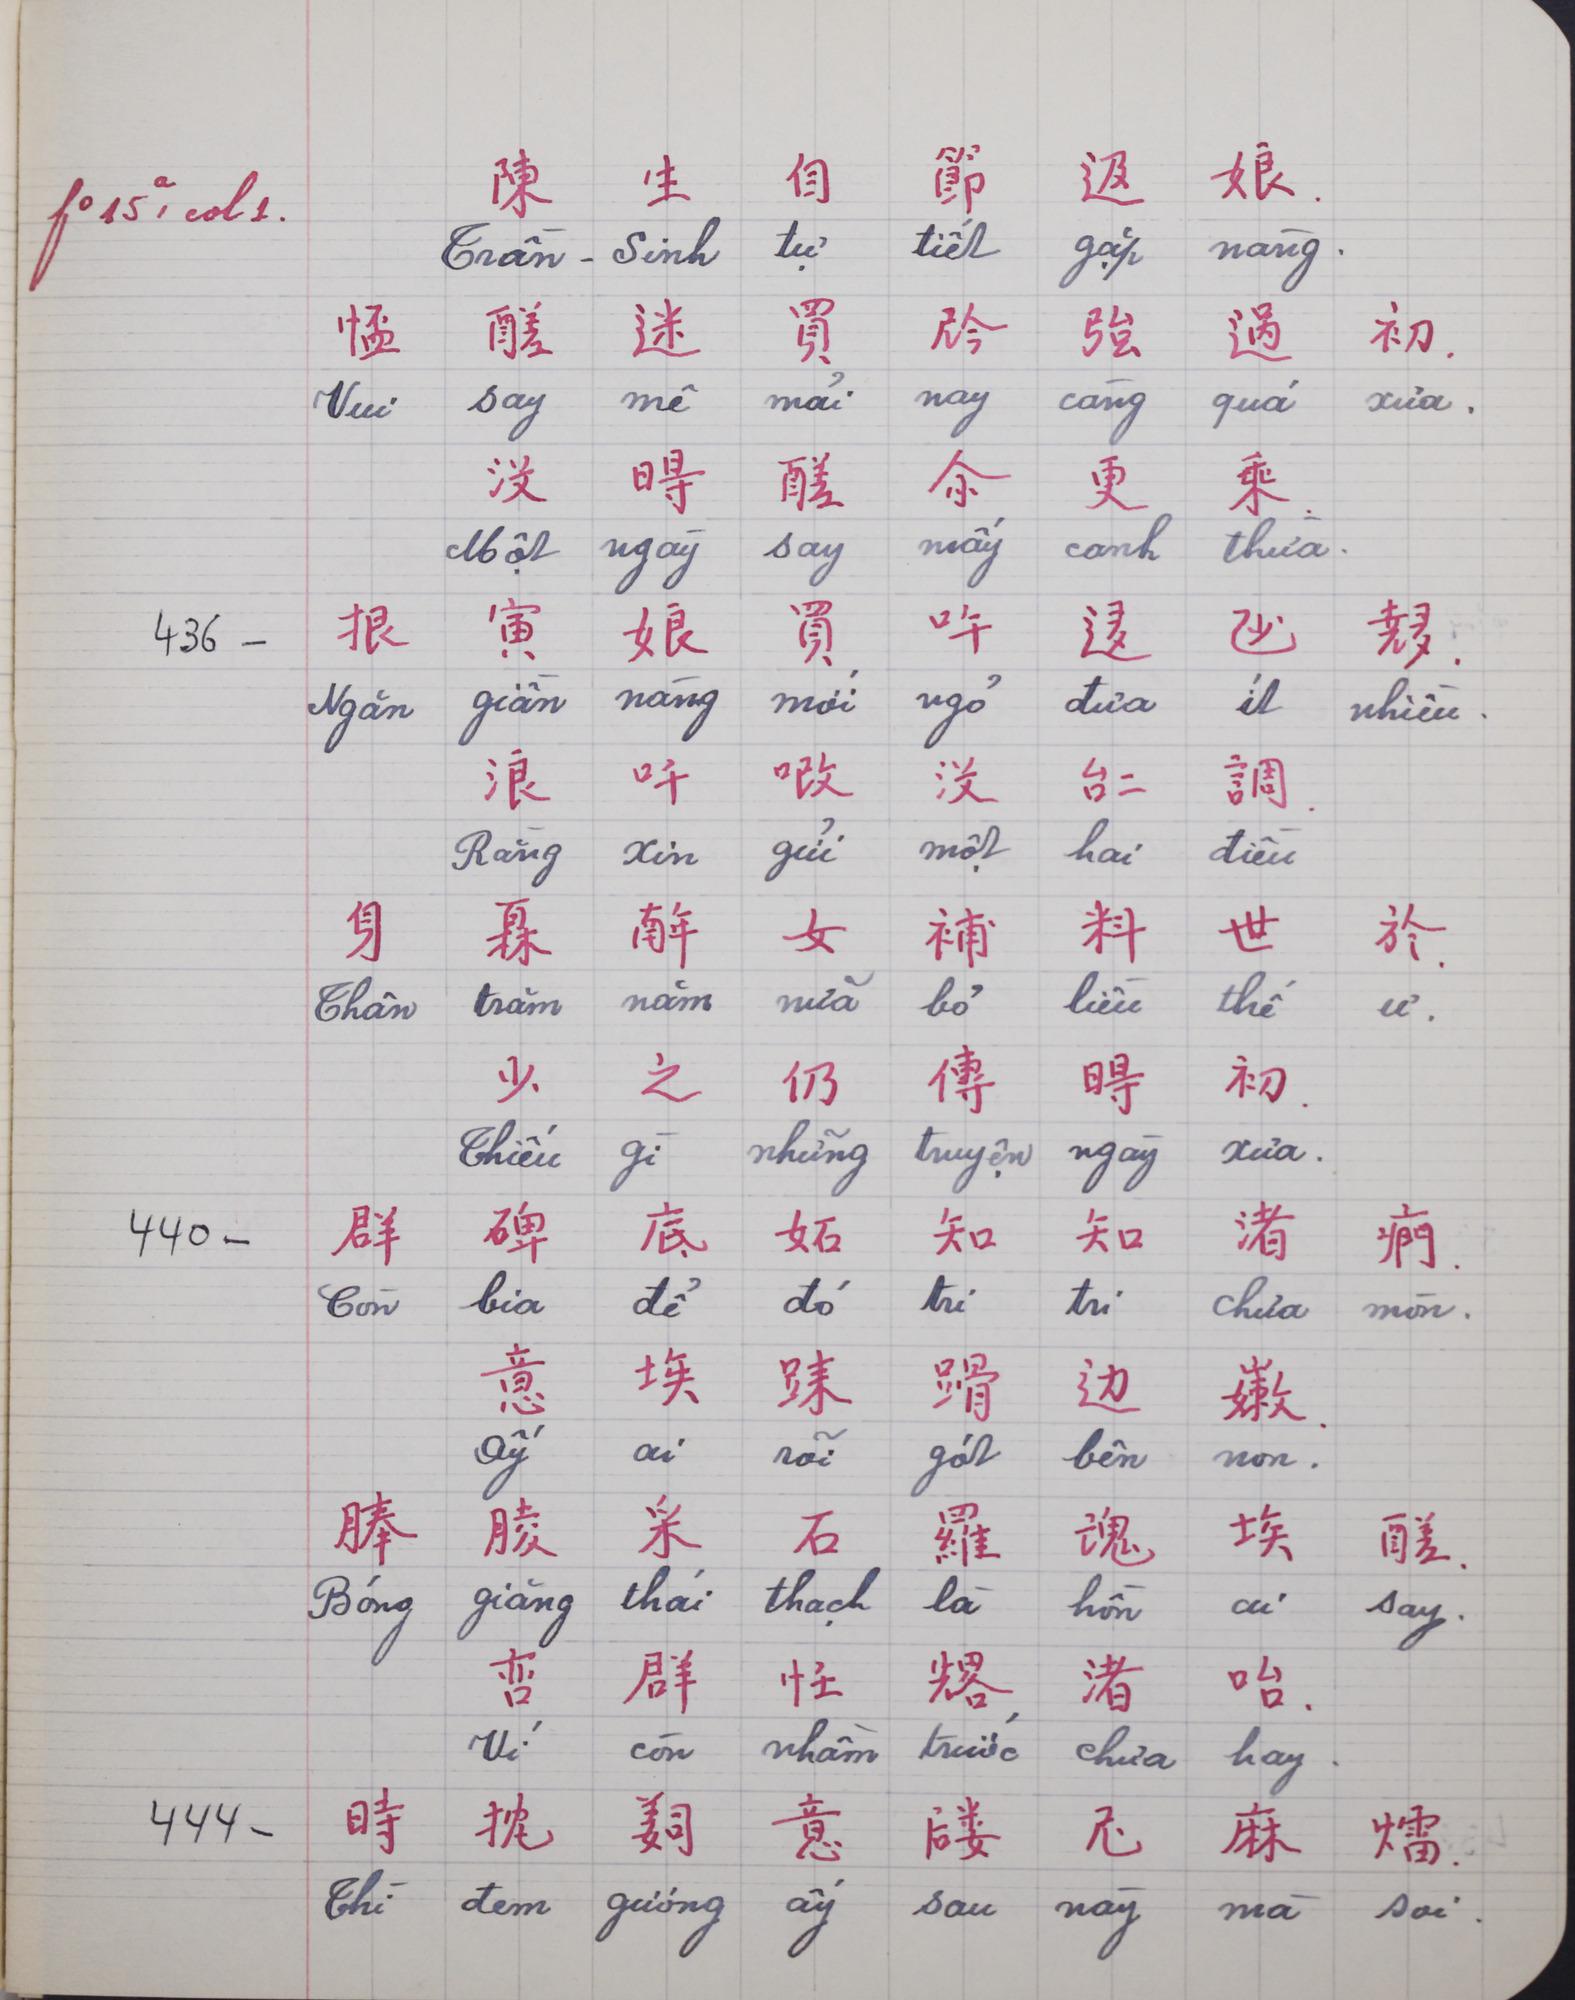 fº 15ª, col 1.
陳 生 自 節 返 娘.
Trần - Sinh tự tiết gặp nàng.
醝 迷 買 強 過 初.
Vui say mê mải nay càng quá xưa.
沒 㝵 醝 尒 更 乘.
Một ngày say mấy canh thừa.
436 - 拫 寅 娘 買 吘 迻 𠃣 𡗊.
Ngăn giần nàng mới ngỏ đưa ít nhiều.
浪 吀 𠳚 沒 𠄩 調.
Rằng xin gửi một hai điều
身 𤾓 𢆥 女 補 料 世 於.
Thân trăm năm nữa bỏ liều thế ư.
少 之 仍 傳 㝵 初.
Thiếu gì những truyện ngày xưa.
440 - 群 碑 底 妬 知 知 渚 𤷱.
Còn bia để đó tri tri chưa mòn.
意 埃 踈 𨃴 边 嫩.
Ấy ai rõi gót bên non.
䏾 𦝄 采 石 羅 魂 埃 醝.
Bóng giăng thái thạch là hồn ai say.
𠸠 群 恁 𠓀 渚 咍.
Ví còn nhầm trước chưa hay.
444 - 時 抌 𦎛 意 𢖕 尼 麻 㷟.
Thì đem gương ấy sau này mà soi.